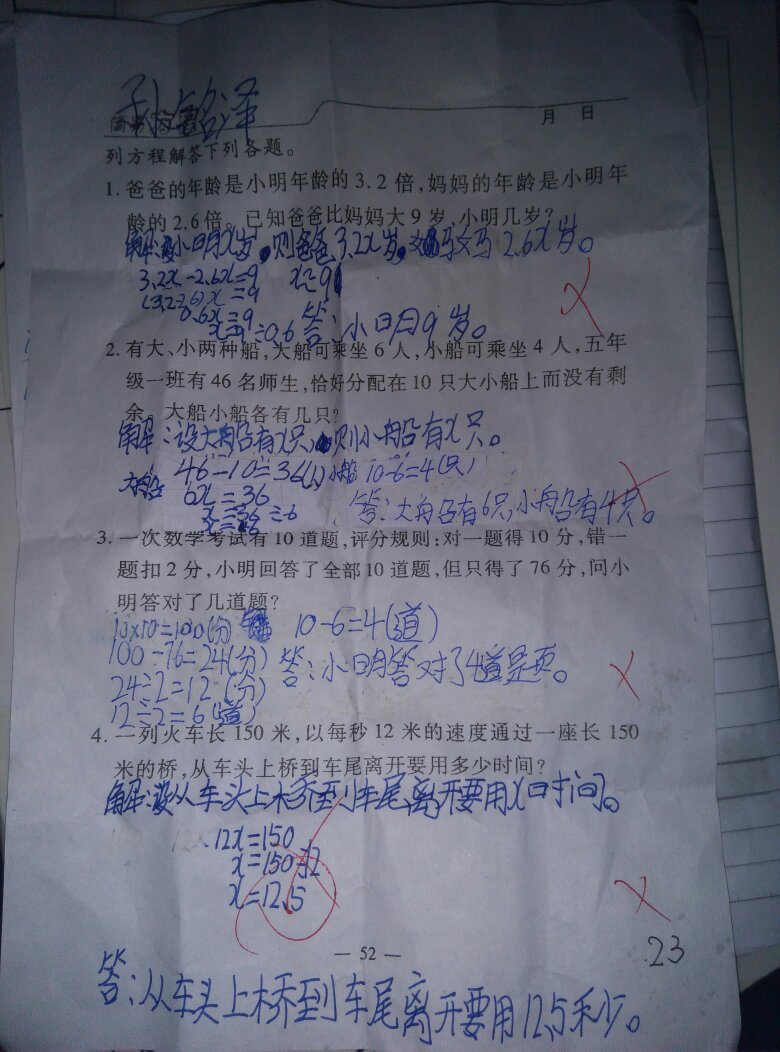 孙铭泽
月 日
列方程解答下列各题。
1. 爸爸的年龄是小明年龄的 3.2 倍,妈妈的年龄是小明年
龄的 2.6 倍。已知爸爸比妈妈大 9 岁,小明几岁?
解:小明x岁。则爸爸3.2x岁。妈妈2.6x岁。
3.2x-2.6x=9 x=9
(3.2-2.6)x=9
0.6x=9
x=9÷0.6 答:小明9岁。
2. 有大、小两种船,大船可乘坐 6 人,小船可乘坐 4 人,五年
级一班有 46 名师生,恰好分配在 10 只大小船上而没有剩
余。大船小船各有几只?
解:设大船有x只,则小船有x只。
大船 46-10=36(人) 小船 10-6=4(只)
6x=36
x=36÷6 答:大船有6只,小船有4只。
x=6
3. 一次数学考试有 10 道题,评分规则:对一题得 10 分,错一
题扣 2 分,小明回答了全部 10 道题,但只得了 76 分,问小
明答对了几道题?
10×10=100(分) 10-6=4(道)
100-76=24(分) 答:小明答对了4道题。
24÷2=12(分)
12÷2=6(道)
4. 一列火车长 150 米,以每秒 12 米的速度通过一座长 150
米的桥,从车头上桥到车尾离开要用多少时间?
解:设从车头上桥到车尾离开要用x时间。
12x=150
x=150÷12
x=12.5
— 52 —
23
答:从车头上桥到车尾离开要用12.5秒。